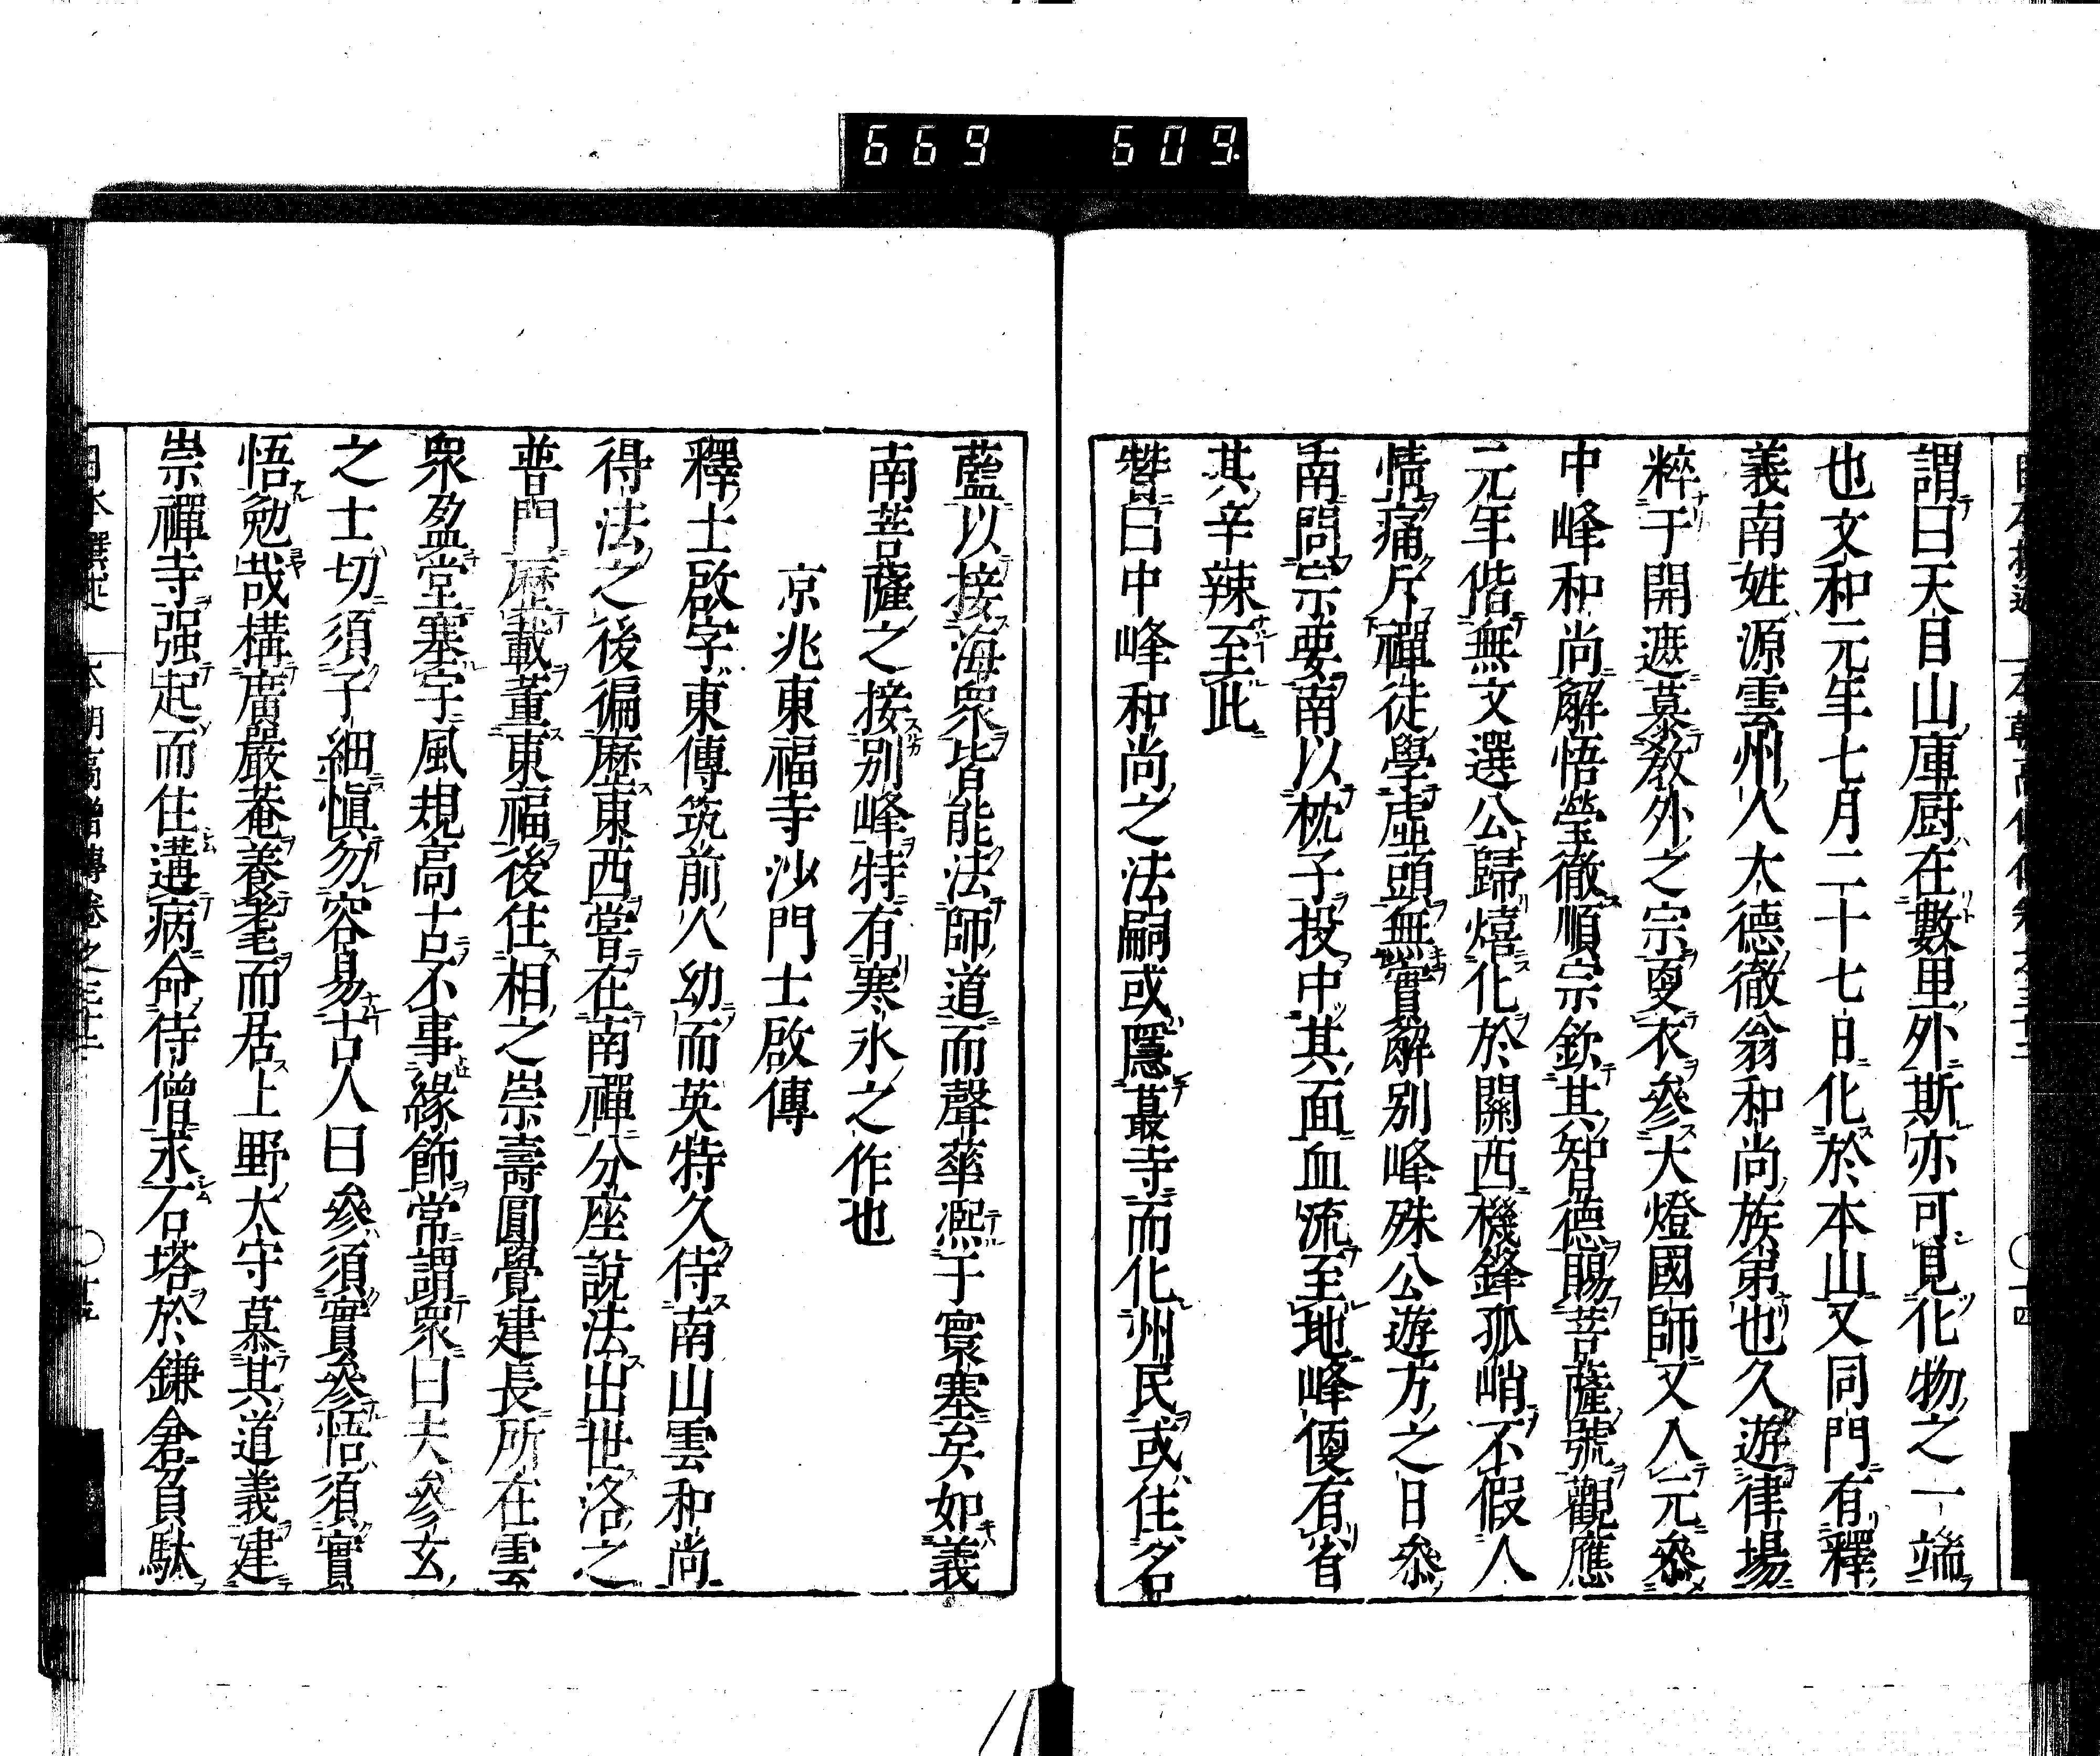 669 609.
謂曰天目山庫厨在數里外斯亦可見化物之一端
也文和元年七月二十七日化於本山又同門有釋
義南姓源雲州人大德徹翁和尚族弟也久遊律場
粹于開遮慕教外之宗更衣參大燈國師又入元參
中峰和尚解悟瑩徹順宗欽其智德賜菩薩號觀應
元年偕無文選公歸熺化於關西機鋒孤峭不假人
情痛斥禪徒學虛頭無實解別峰殊公遊方之日參
南問宗要南以枕子投中其面血流至地峰便有省
其辛辣至此
贊曰中峰和尚之法嗣或隱蕞寺而化州民或住名
藍以接海衆皆能法師道而聲華凞于寰塞矣如義
南菩薩之接別峰特有寒氷之作也
京兆東福寺沙門士啟傳
釋士啟字東傳筑前人幼而英特久侍南山雲和尚
得法之後徧歷東西嘗在南禪分座說法出世洛之
普門歷載董東福後住相之崇壽圓覺建長所在雲
衆盈堂塞宇風規高古不事緣飾常謂衆曰夫參玄
之士切須子細愼勿容易古人曰參須實參悟須實
悟勉哉構廣嚴菴養老而居上野太守慕其道義建
崇禪寺强起而住遘病命侍僧求石塔於鎌倉負駄
日本撰述 本朝高僧傳卷之三十 〇 十五